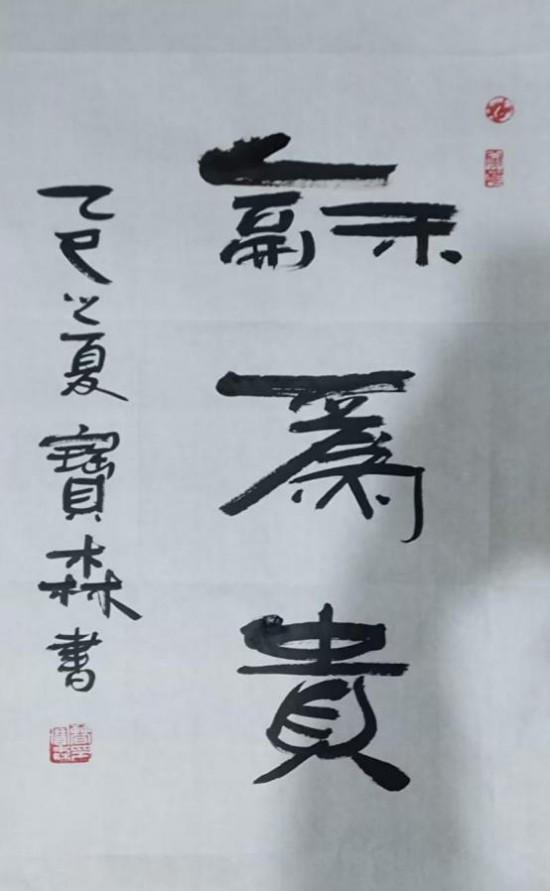 龢為貴
乙巳之夏寶森書